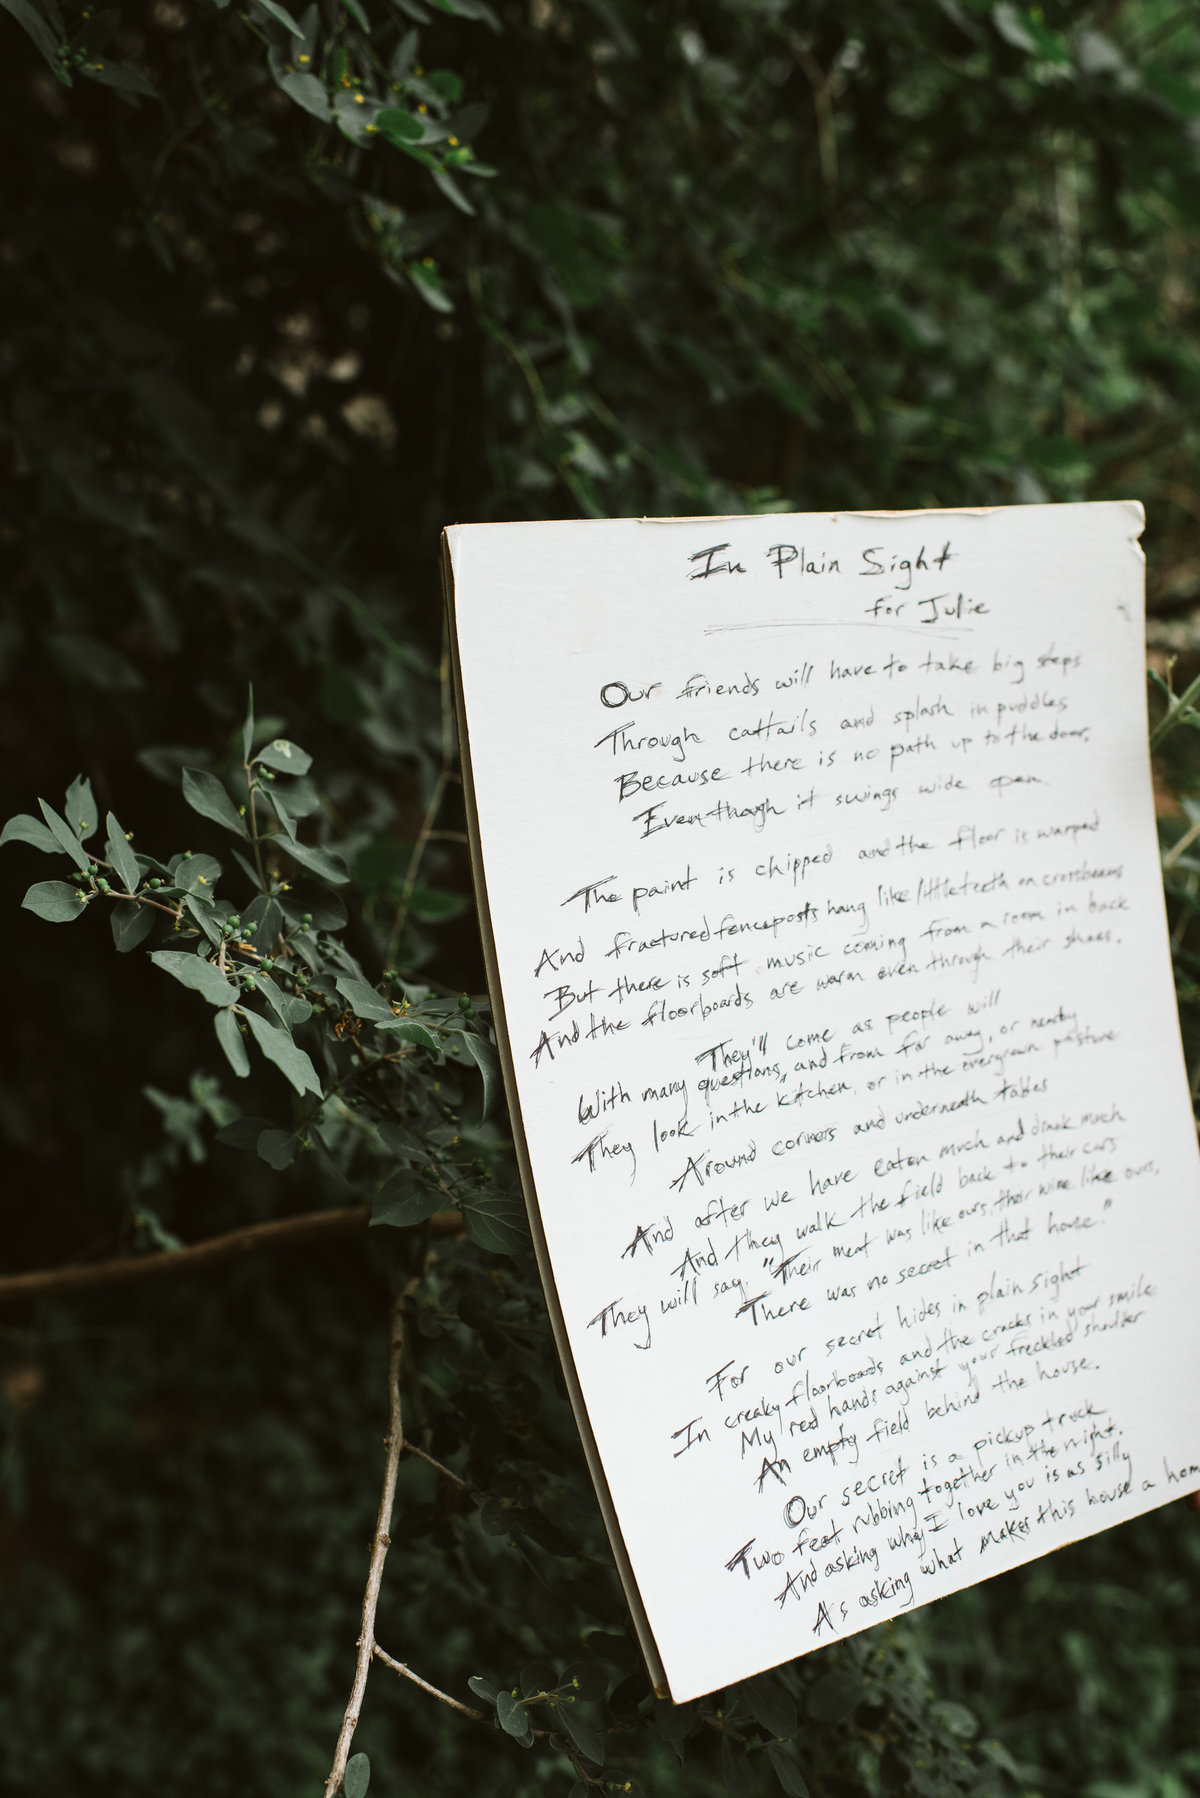 In Plain Sight
for Julie
Our friends will have to take big steps
Through cattails and splash in puddles
Because there is no path up to the door,
Even though it swings wide open.
The paint is chipped and the floor is warped
And fractured fenceposts hang like little teeth on crossbeams
But there is soft music coming from a room in back
And the floorboards are warm even through their shoes.
They'll come as people will
With many questions, and from far away, or nearby
They look in the kitchen, or in the overgrown pasture
Around corners and underneath tables
And after we have eaten much and drank much
And they walk the field back to their cars
They will say, "Their meat was like ours, their wine like ours,
There was no secret in that house."
For our secret hides in plain sight
In creaky floorboards and the cracks in your smile
My red hands against your freckled shoulder
An empty field behind the house.
Our secret is a pickup truck
Two feet rubbing together in the night.
And asking why I love you is as silly
As asking what makes this house a hom